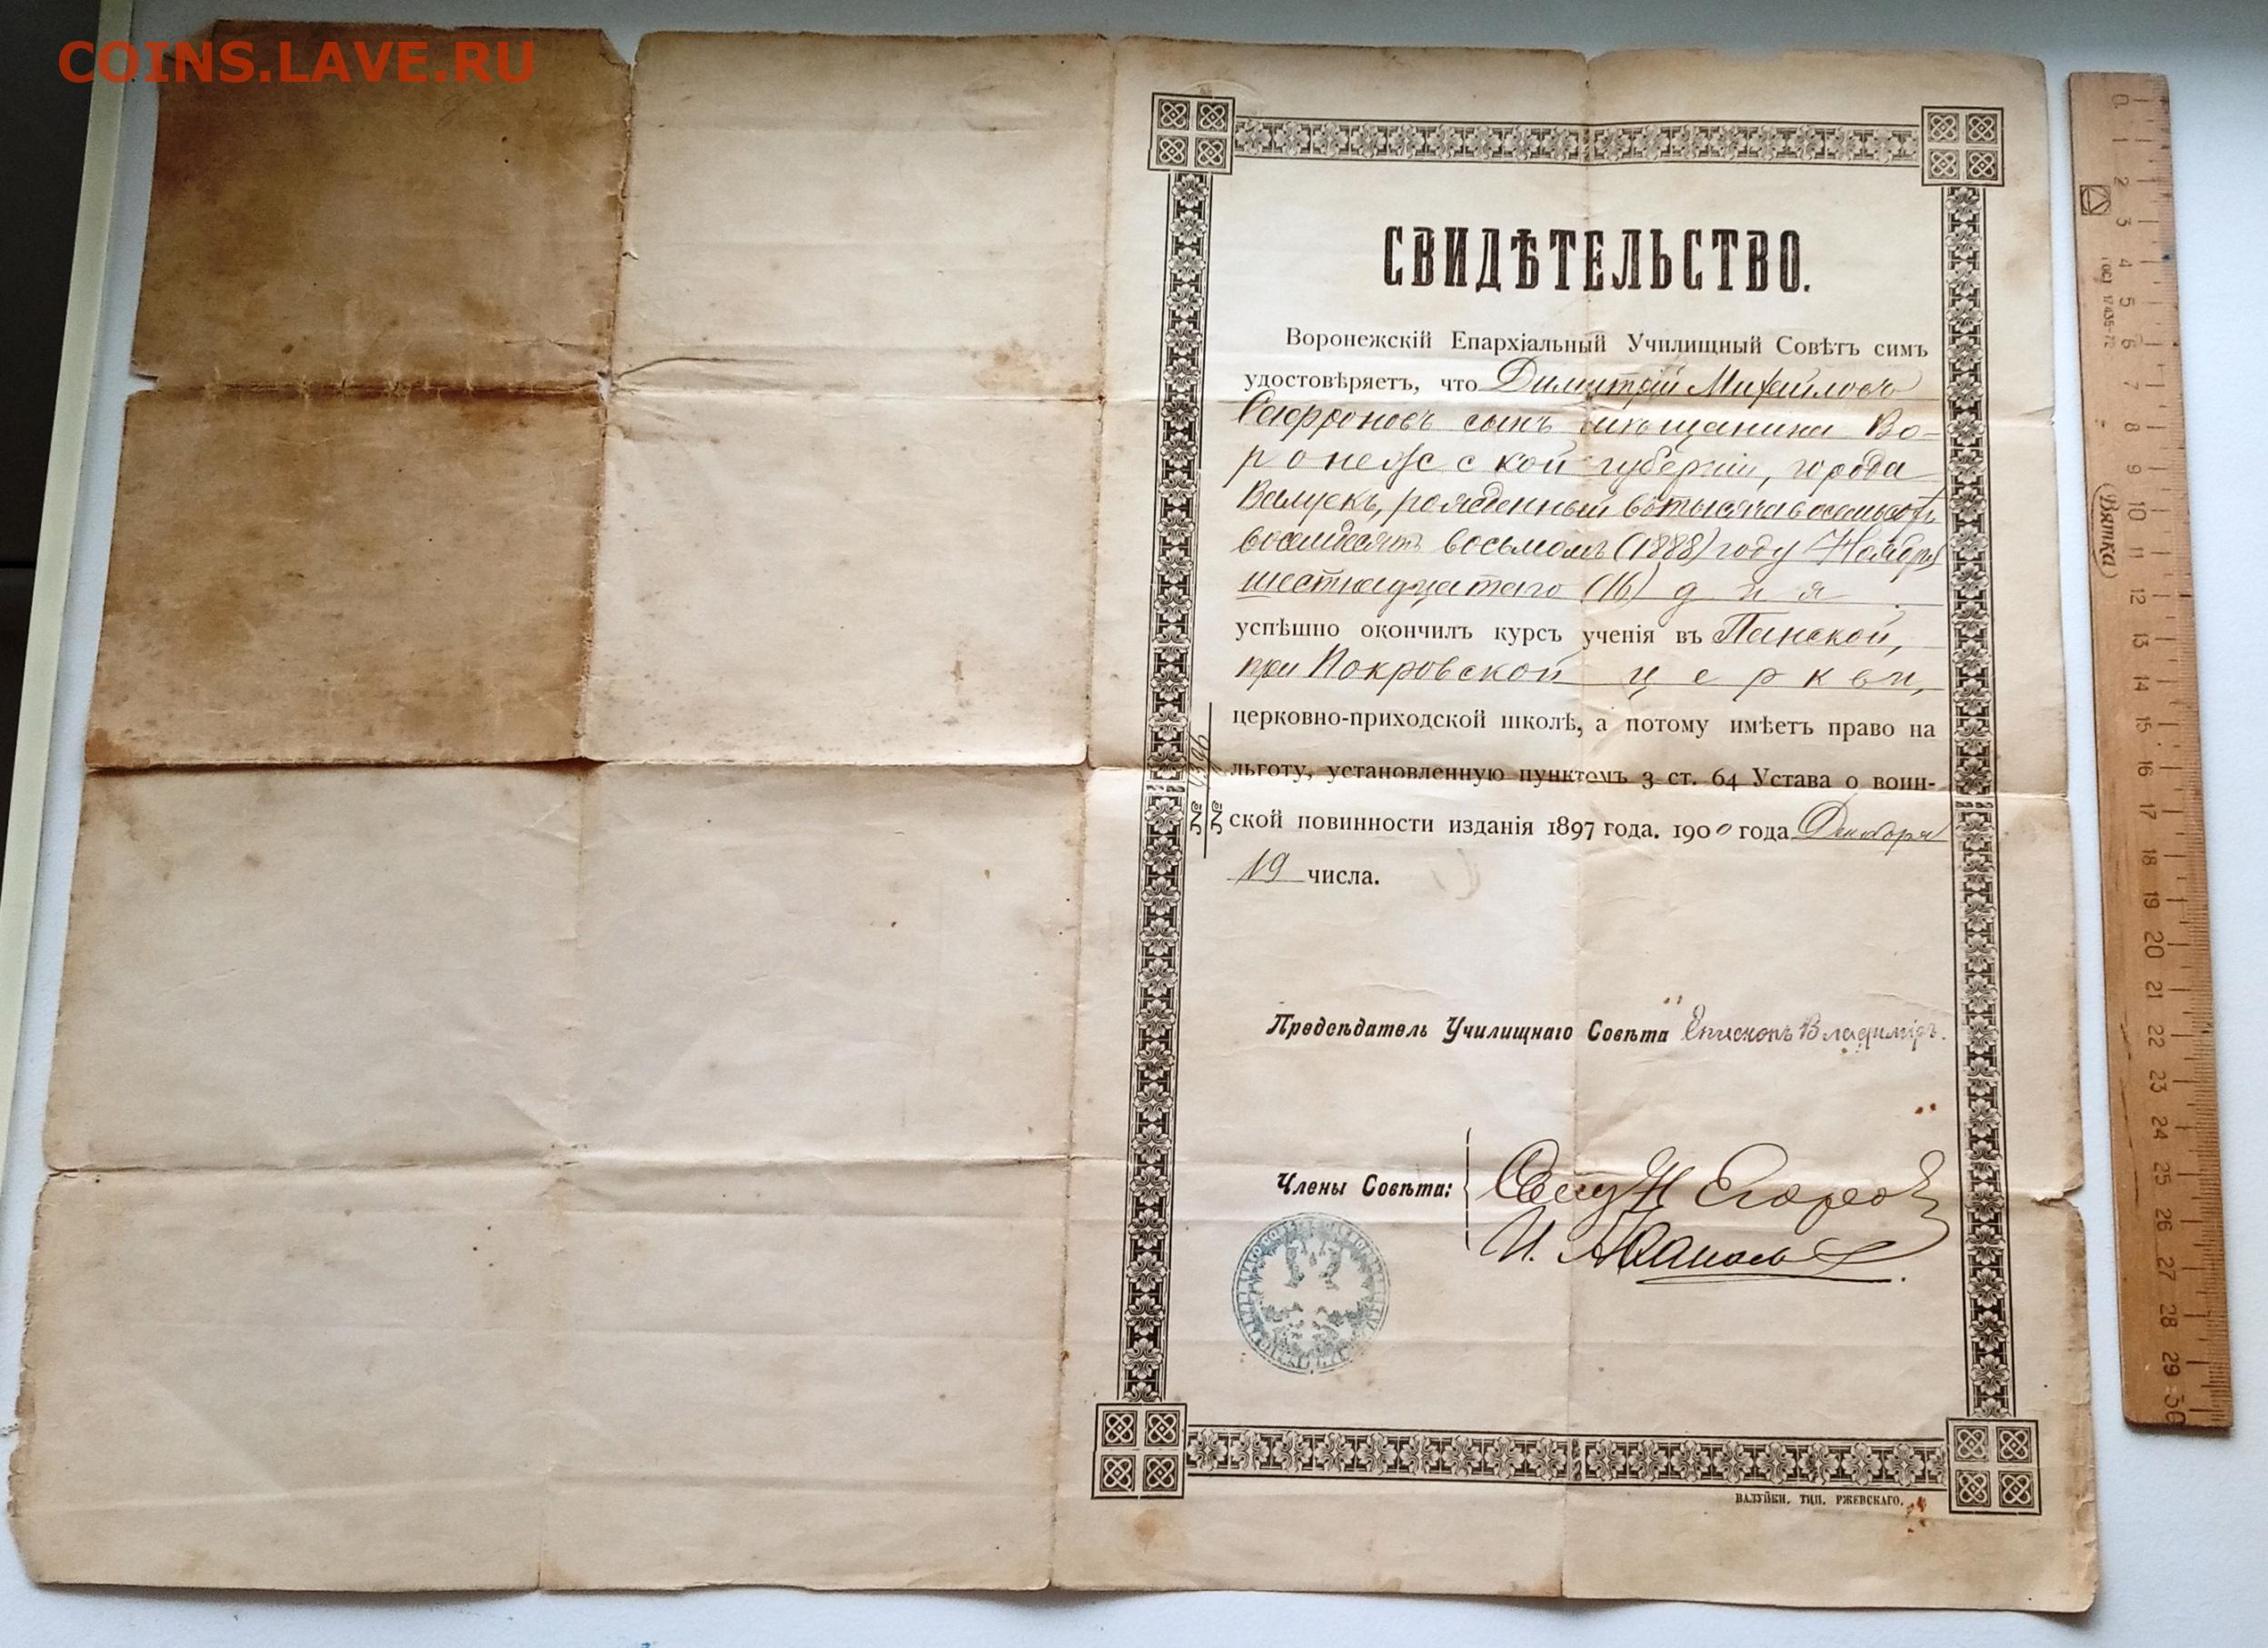 COINS.LAVE.RU
СВИДѢТЕЛЬСТВО.
Воронежскій Епархіальный Училищный Совѣтъ симъ
удостовѣряетъ, что Димитрій Михайловъ
Сафроновъ сынъ мѣщанина Во-
ронежской губерніи, города
Валуекъ, рожденный въ тысяча восемьсотъ
восемьдесятъ восьмомъ (1888) году Ноября
шестнадцатаго (16) дня
успѣшно окончилъ курсъ ученія въ Панской,
при Покровской церкви,
церковно-приходской школѣ, а потому имѣетъ право на
льготу, установленную пунктомъ 3 ст. 64 Устава о воин-
ской повинности изданія 1897 года. 1900 года Декабря
19 числа.
№
№
Предсѣдатель Училищнаго Совѣта Епископъ Владиміръ.
Члены Совѣта: Свящ. Н Егоров
И.
ВАЛУЙКИ, ТИП. РЖЕВСКАГО.
0 1 2 3 4 5 6 7 8 9 10 11 12 13 14 15 16 17 18 19 20 21 22 23 24 25 26 27 28 29 30
ГОСТ 17435-72
Вятка